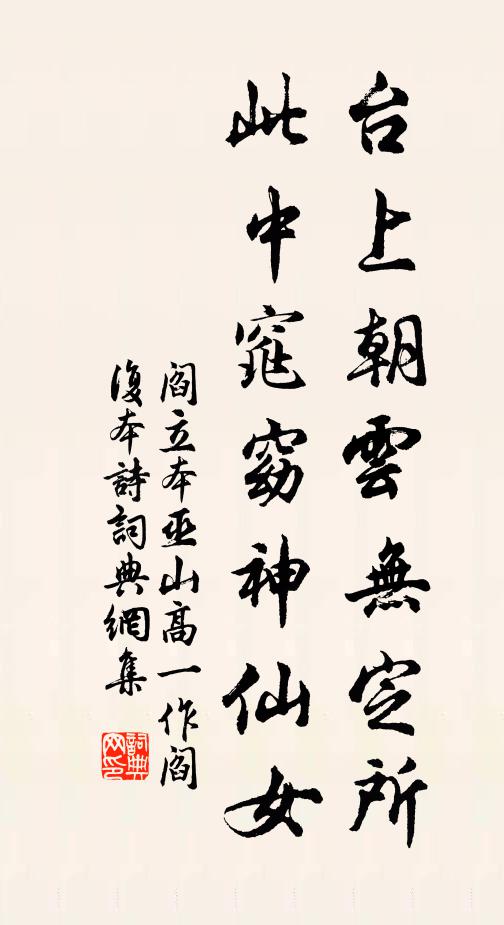 台上朝雲無定所
此中窕窈神仙女
閻立本巫山高一作閻
復本詩詞典網集
詞典網印